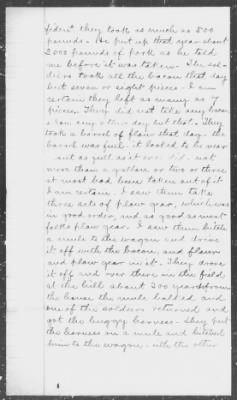 fident they took as much as 500
pounds. He put up that year about
2000 pounds of pork as he told
me before it was taken. The sol-
diers took all the bacon that day
but seven or eight pieces. I am
certain they left as many as 7
pieces. They did not take bacon
any other day but that. They
took a barrel of flour that day. The
barrel was full, it looked to be near
as full as it ever did. not
more than a gallon or two or three
at most had been taken out of it
I am certain. I saw them take
three sets of plow gear, which was
in good order, and as good as most
folks plow gear. I saw them hitch
a mule to the wagon and drive
it off with the bacon, and flour
and plow gear in it. They drove
it off and over there in the field
at the hill about 300 yards from
the house the mule balked and
one of the soldiers returned and
got the buggy harness. They put
the harness on a mule and hitched
him to the wagon with the other